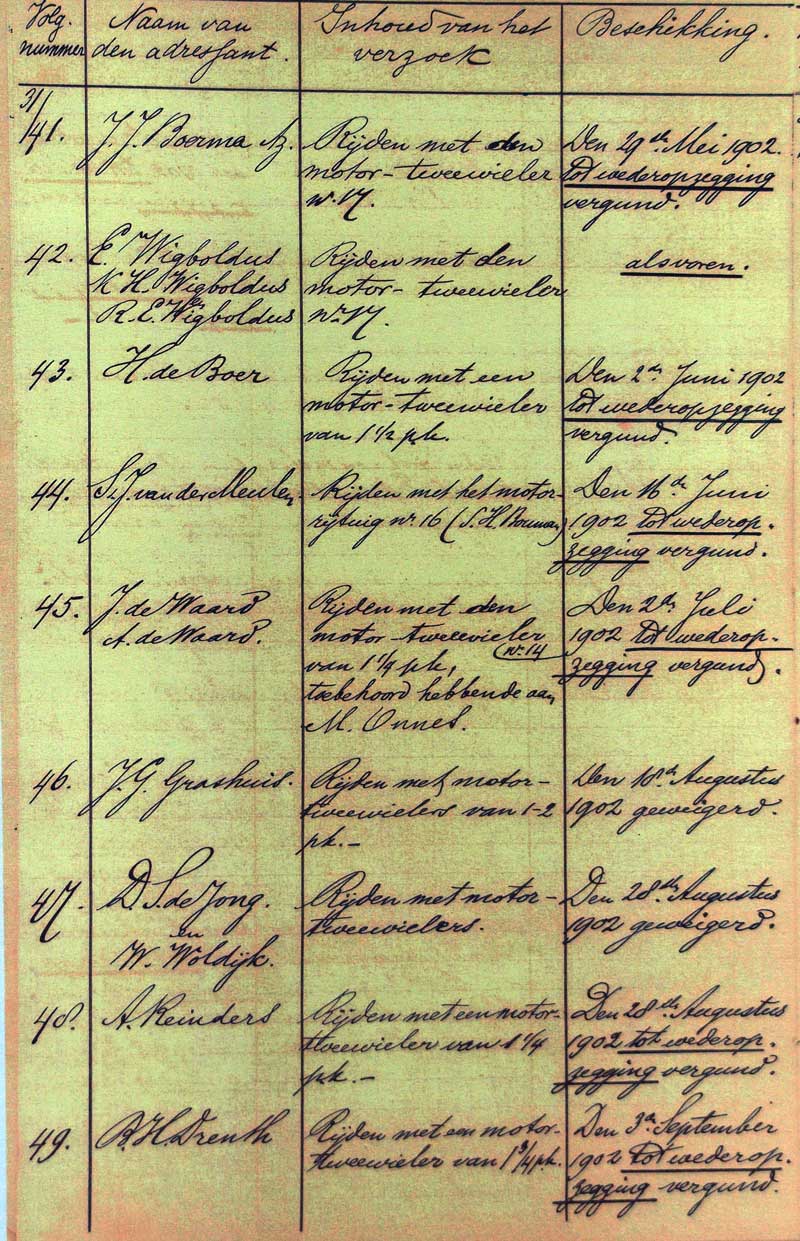 Volg. nummer
Naam van den adressant.
Inhoud van het verzoek
Beschikking.
31/
41.
J. J. Boerma Az.
Rijden met den
motor-tweewieler
nr. 17.
Den 29en Mei 1902.
tot wederopzegging
vergund.
42.
E. Wigboldus
K H. Wigboldus
R. E. Wigboldus
Rijden met den
motor-tweewieler
nr. 17.
als voren.
43.
H. de Boer
Rijden met een
motor-tweewieler
van 1 1/2 pk.
Den 2en Juni 1902
tot wederopzegging
vergund.
44.
S. J. van der Meulen
Rijden met het motor-
rijtuig nr. 16 (S. H. Bouman)
Den 16en Juni
1902 tot wederop-
zegging vergund.
45.
J. de Waard
A. de Waard.
Rijden met den
motor-tweewieler
nr. 14
van 1 1/4 pk,
toebehoord hebbende aan
M. Onnes.
Den 2en Juli
1902 tot wederop-
zegging vergund.
46.
J. G. Grashuis.
Rijden met motor-
tweewielers van 1-2
pk.-
Den 18en Augustus
1902 geweigerd.
47.
D. S. de Jong.
en
W. Woldijk.
Rijden met motor-
tweewielers.
Den 28en Augustus
1902 geweigerd.
48.
A. Reinders
Rijden met een motor-
tweewieler van 1 1/4
pk.-
Den 28en Augustus
1902 tot wederop-
zegging vergund.
49.
R. H. Drenth
Rijden met een motor-
tweewieler van 1 3/4 pk.
Den 3en September
1902 tot wederop-
zegging vergund.